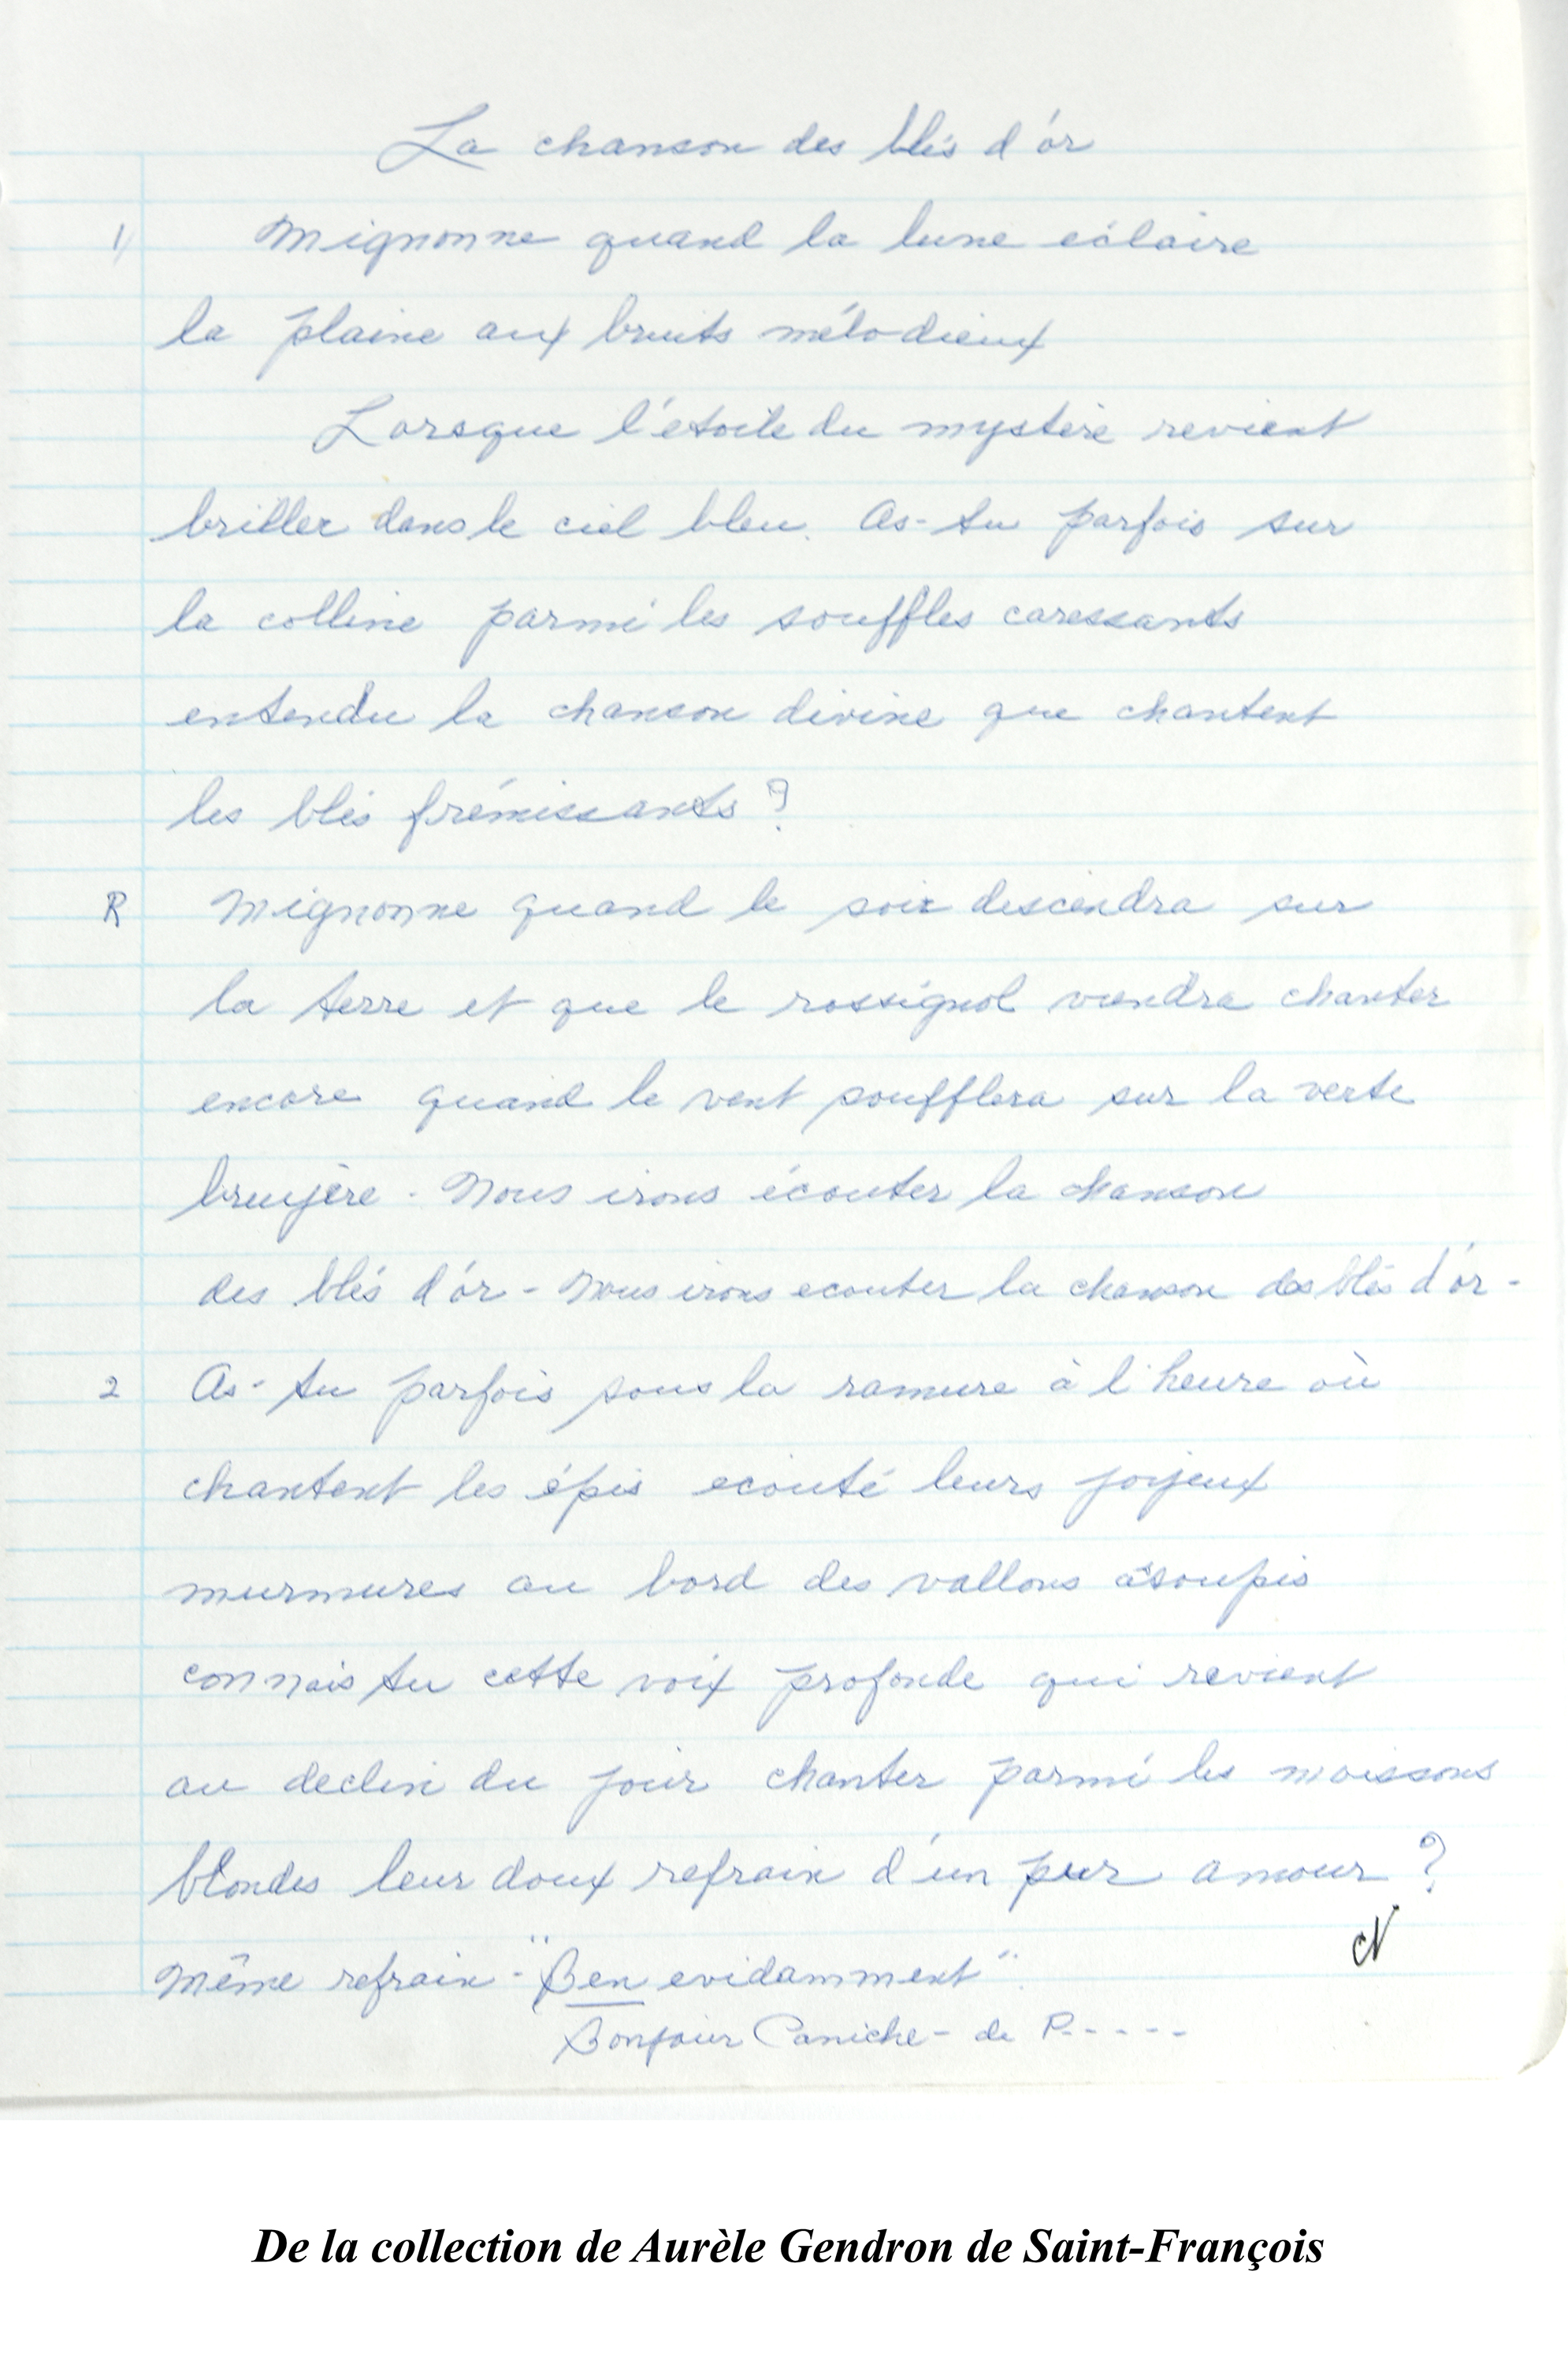 La chanson des blés d'or
1) Mignonne quand la lune eclaire
la plaine aux bruits mélodieux
Lorsque l'étoile du mystère revient
briller dans le ciel bleu. As-tu parfois sur
la colline parmi les souffles caressants
entendu la chanson divine que chantent
les blés frémissants ?
R Mignonne quand le soir descendra sur
la terre et que le rossignol viendra chanter
encore quand le vent soufflera sur la verte
bruyère - Nous irons écouter la chanson
des blés d'or - Nous irons ecouter la chanson des blés d'or -
2 As-tu parfois sous la ramure à l'heure où
chantent les épis ecouté leurs joyeux
murmures au bord des vallons assoupis
connais tu cette voix profonde qui revient
au declin du jour chanter parmi les moissons
blondes leur doux refrain d'un pur amour ?
Même refrain - "Ben evidamment".
Bonjour Caniche - de P-----
De la collection de Aurèle Gendron de Saint-François